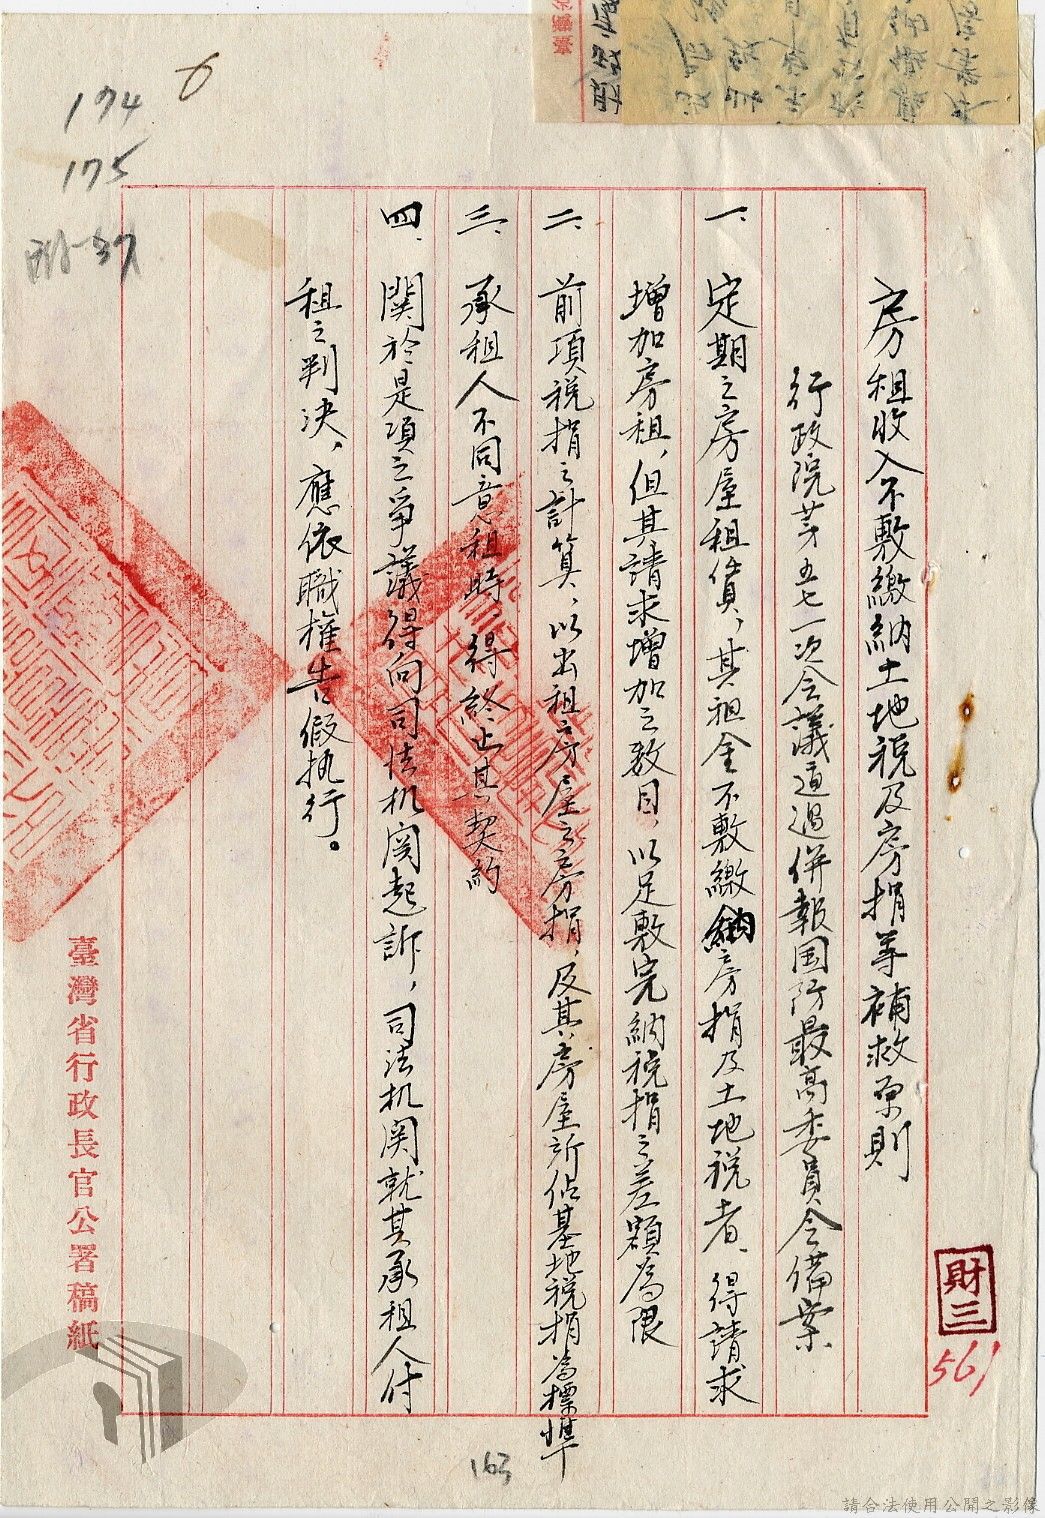 房租收入不敷繳納土地税及房捐等補救原則
行政院第五七一次会議通過併報国防最高委員会備案
一、定期之房屋租賃，其租金不敷繳納房捐及土地税者、得請求
增加房租，但其請求增加之数目、以足敷完納税捐之差額為限
二、前項税捐之計算、以出租之房屋之房捐，及其房屋所佔基地税捐為標準
三、承租人不同意租時，得終止其契約
四、關於是項之爭議得向司法机関起訴，司法机関就其承租人付
租之判決，應依職權告假執行。
臺灣省行政長官公署稿紙
財三
561
6
174
175
附-37
163
請合法使用公開之影像